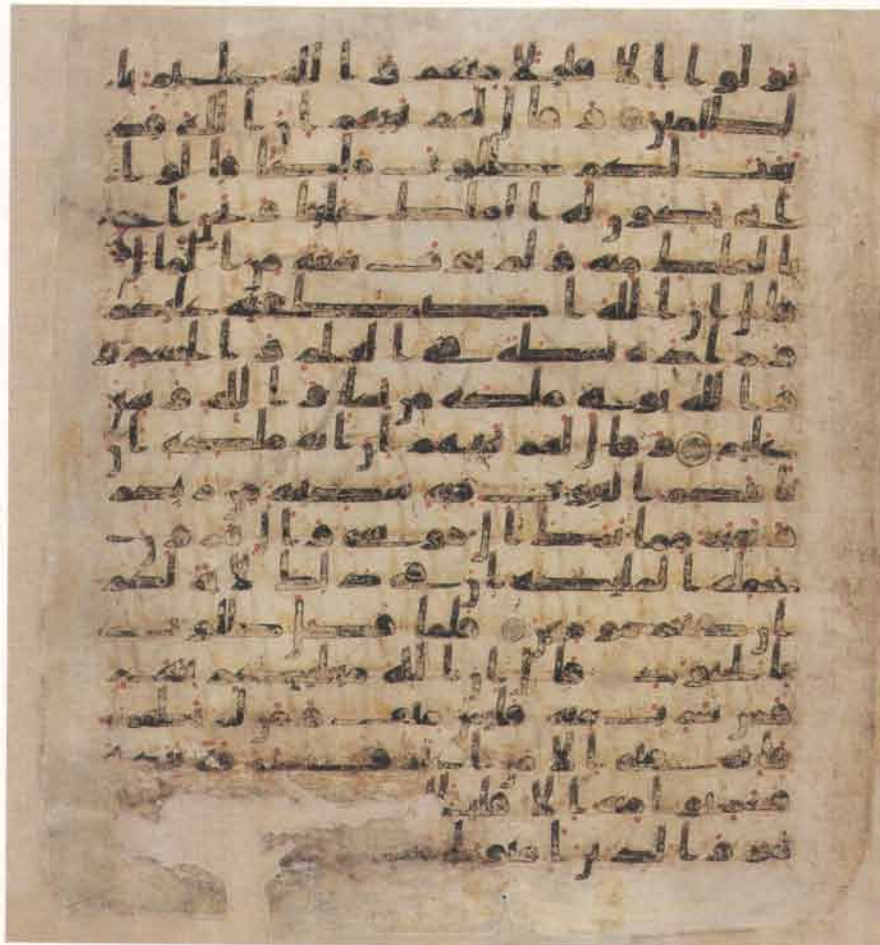 تولوا الا قليلا منهم والله عليم با
لظلمين وقال لهم نبيهم ان الله قد
بعث لكم طلوت ملكا قالوا ا
نى يكون له الملك علينا ونحن احق
بالملك منه ولم يوت سعة من المال
قال ان الله اصطفيه عليكم
وزاده بسطة في العلم والجسم و
الله يوتى ملكه من يشا والله وسع
عليم وقال لهم نبيهم ان اية ملكه ان
ياتيكم التبوت فيه سكينة من ربكم
وبقية مما ترك ال موسى وال هرون
تحمله الملئكة ان في ذلك لاية لكم
ان كنتم مومنين فلما فصل طلوت
بالجنود قال ان الله مبتليكم بنهر
فمن شرب منه فليس منى ومن لم يطعمه
فانه منى الا من اغترف غرفة بيده
فشربوا منه الا قليلا
هو والذين امنوا